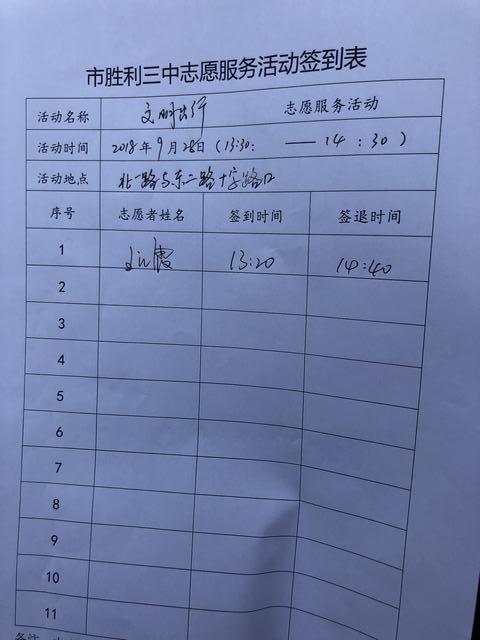 市胜利三中志愿服务活动签到表
活动名称 文明出行 志愿服务活动
活动时间 2018年9月28日(13:30: —— 14:30)
活动地点 北一路与东二路十字路口
序号 志愿者姓名 签到时间 签退时间
1 13:20 14:40
2
3
4
5
6
7
8
9
10
11